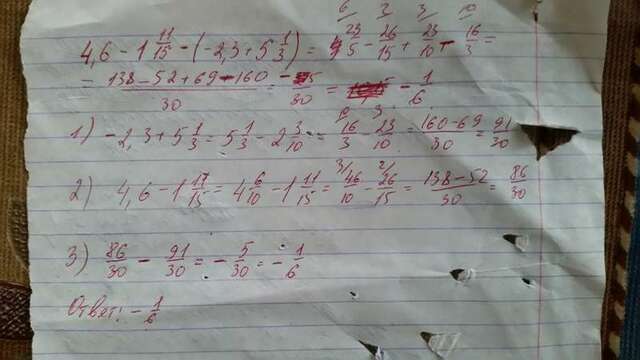 6 2 3 10
4,6 - 1 11/15 - (-2,3 + 5 1/3) = 23/5 - 26/15 + 23/10 - 16/3 =
= (138 - 52 + 69 - 160)/30 = -5/30 = - 1/6
1) -2,3 + 5 1/3 = 5 1/3 - 2 3/10 = 16/3 - 23/10 = (160 - 69)/30 = 91/30
2) 4,6 - 1 11/15 = 4 6/10 - 1 11/15 = 46/10 - 26/15 = (138 - 52)/30 = 86/30
3) 86/30 - 91/30 = - 5/30 = - 1/6
Ответ: - 1/6